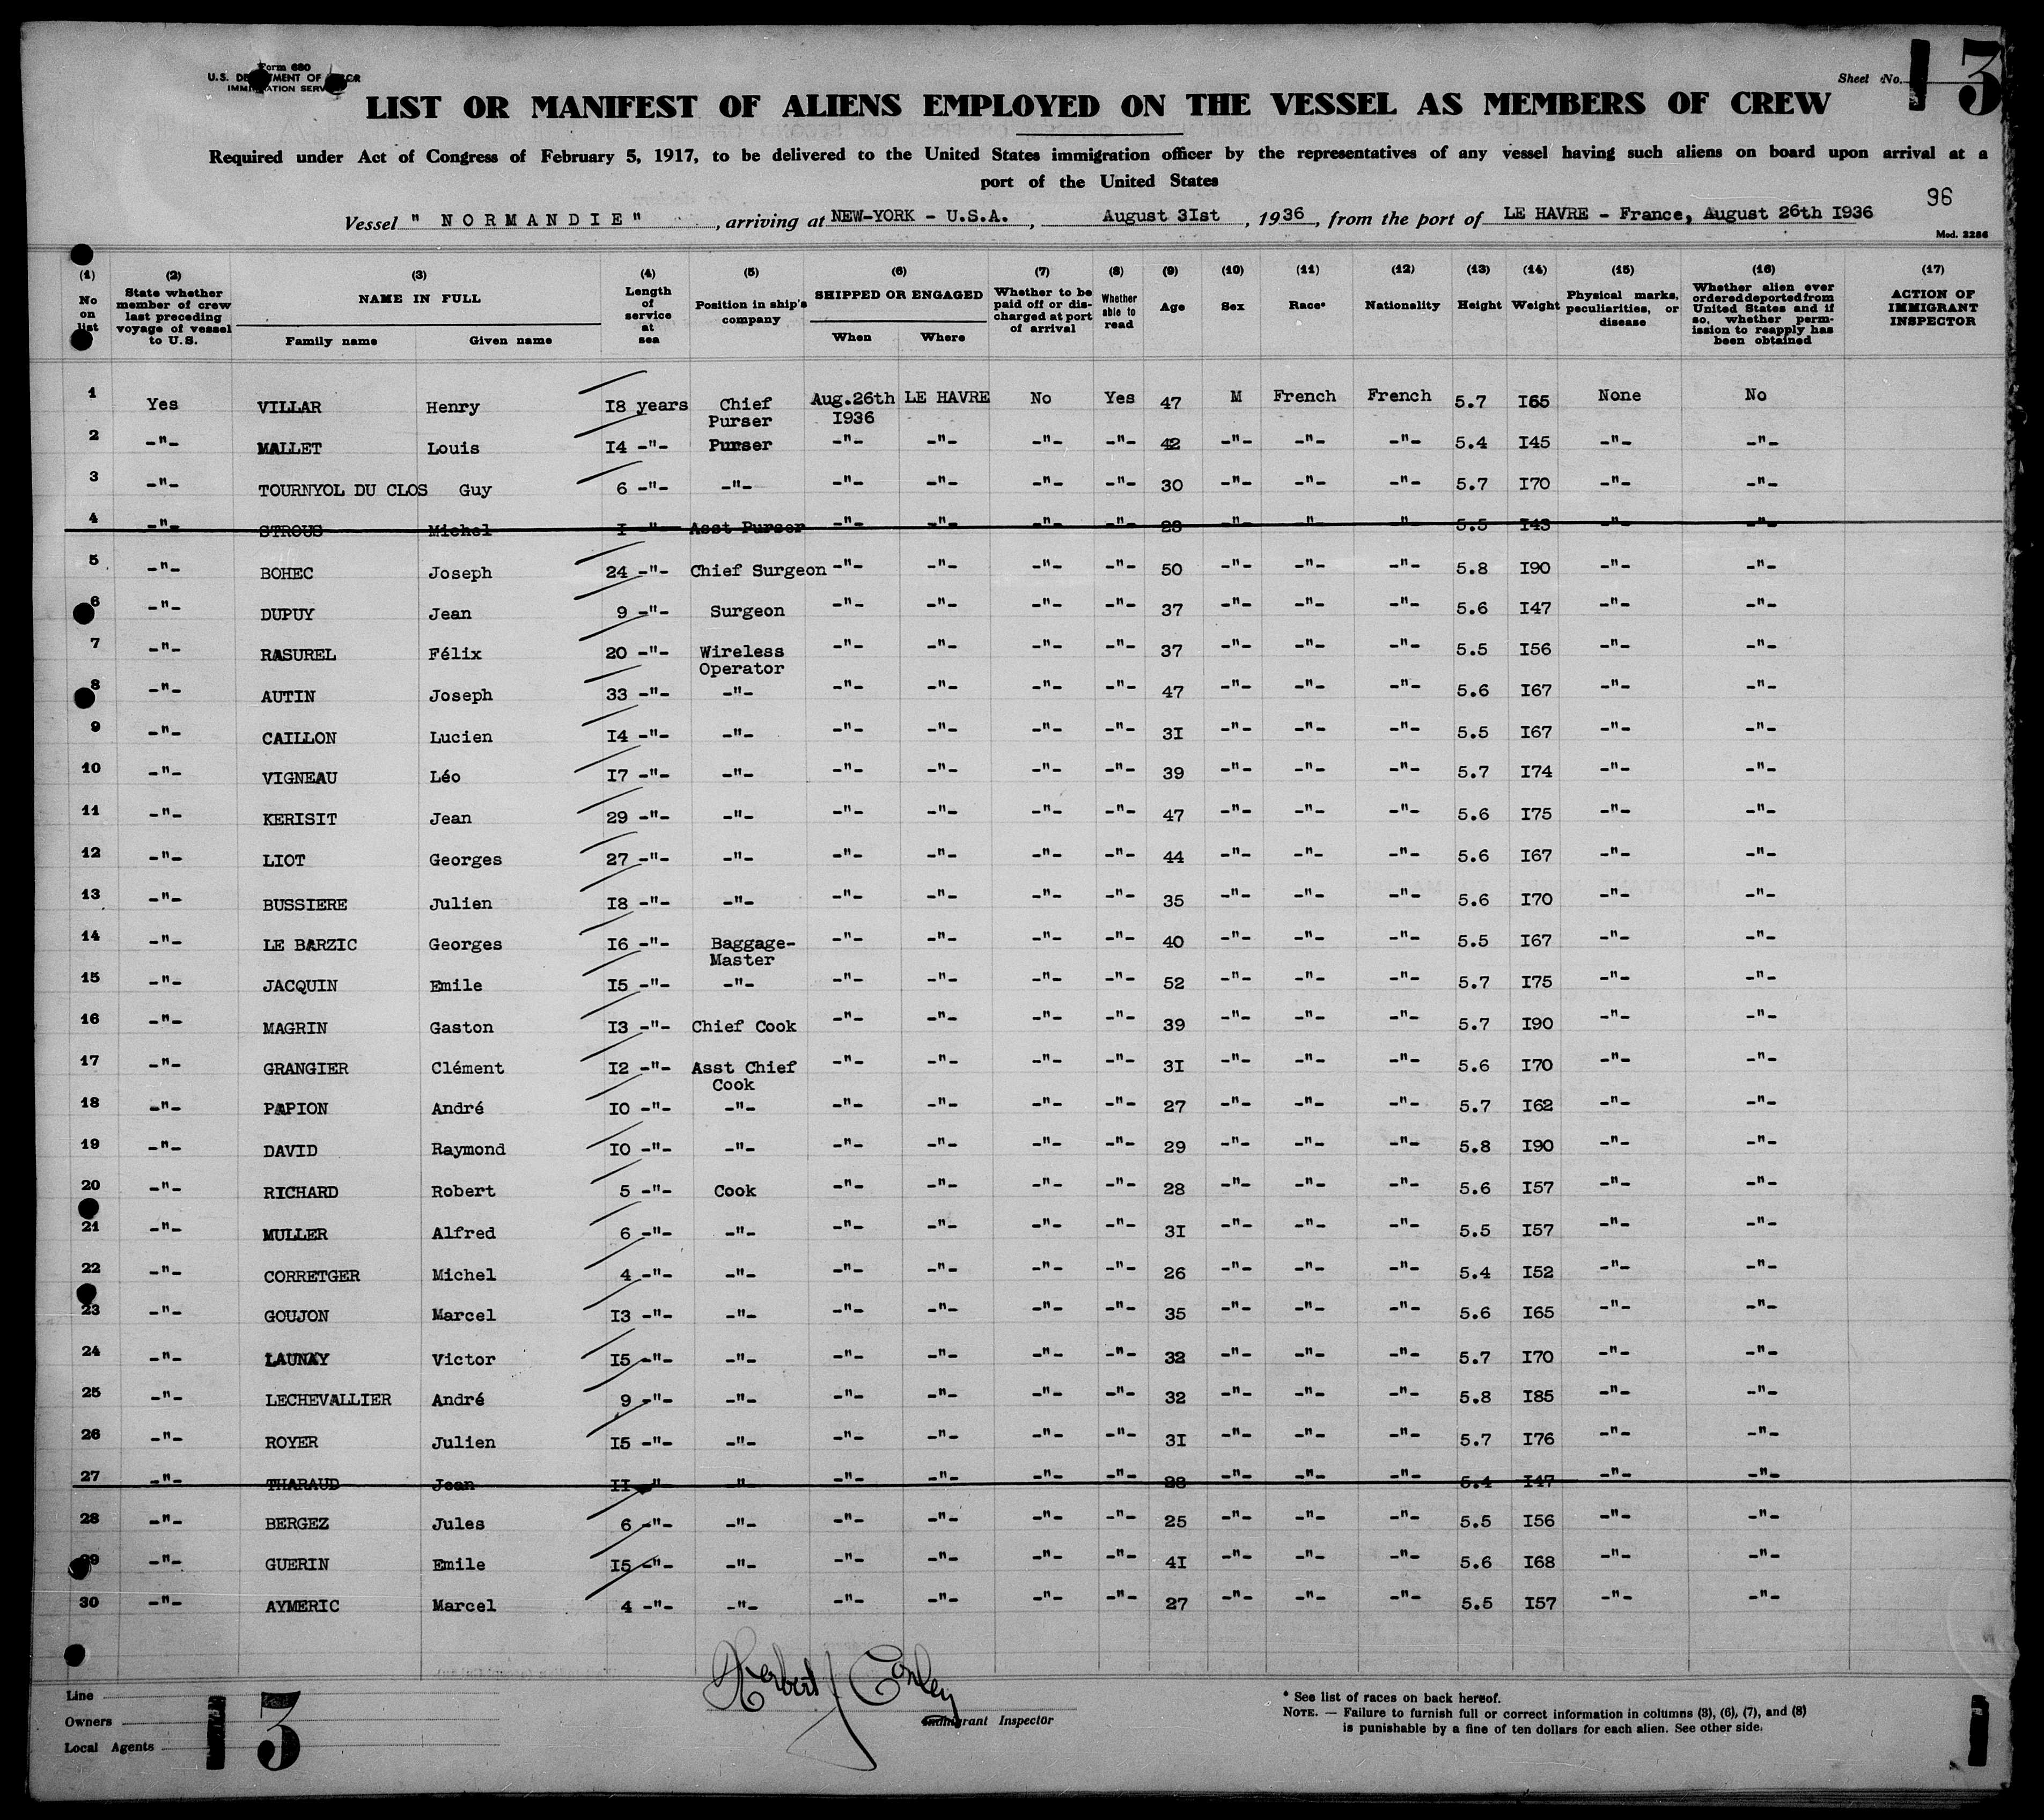 Form 680
U.S. DEPARTMENT OF LABOR
IMMIGRATION SERVICE
Sheet No. 13
LIST OR MANIFEST OF ALIENS EMPLOYED ON THE VESSEL AS MEMBERS OF CREW
Required under Act of Congress of February 5, 1917, to be delivered to the United States immigration officer by the representatives of any vessel having such aliens on board upon arrival at a
port of the United States
96
Vessel " NORMANDIE ", arriving at NEW-YORK - U.S.A., August 3Ist, 1936, from the port of LE HAVRE - France, August 26th I936
Mod. 2286
(1) No on list (2) State whether member of crew last preceding voyage of vessel to U.S. (3) NAME IN FULL Family name Given name (4) Length of service at sea (5) Position in ship's company (6) SHIPPED OR ENGAGED When Where (7) Whether to be paid off or discharged at port of arrival (8) Whether able to read (9) Age (10) Sex (11) Race* (12) Nationality (13) Height (14) Weight (15) Physical marks, peculiarities, or disease (16) Whether alien ever ordered deported from United States and if so, whether permission to reapply has been obtained (17) ACTION OF IMMIGRANT INSPECTOR
1 Yes VILLAR Henry I8 years Chief Purser Aug.26th I936 LE HAVRE No Yes 47 M French French 5.7 I65 None No
2 -"- MALLET Louis I4 -"- Purser -"- -"- -"- -"- 42 -"- -"- -"- 5.4 I45 -"- -"-
3 -"- TOURNYOL DU CLOS Guy 6 -"- -"- -"- -"- -"- -"- 30 -"- -"- -"- 5.7 I70 -"- -"-
4 -"- STROUS Michel I -"- Asst Purser -"- -"- -"- -"- 28 -"- -"- -"- 5.5 I43 -"- -"-
5 -"- BOHEC Joseph 24 -"- Chief Surgeon -"- -"- -"- -"- 50 -"- -"- -"- 5.8 I90 -"- -"-
6 -"- DUPUY Jean 9 -"- Surgeon -"- -"- -"- -"- 37 -"- -"- -"- 5.6 I47 -"- -"-
7 -"- RASUREL Félix 20 -"- Wireless Operator -"- -"- -"- -"- 37 -"- -"- -"- 5.5 I56 -"- -"-
8 -"- AUTIN Joseph 33 -"- -"- -"- -"- -"- -"- 47 -"- -"- -"- 5.6 I67 -"- -"-
9 -"- CAILLON Lucien I4 -"- -"- -"- -"- -"- -"- 3I -"- -"- -"- 5.5 I67 -"- -"-
10 -"- VIGNEAU Léo I7 -"- -"- -"- -"- -"- -"- 39 -"- -"- -"- 5.7 I74 -"- -"-
11 -"- KERISIT Jean 29 -"- -"- -"- -"- -"- -"- 47 -"- -"- -"- 5.6 I75 -"- -"-
12 -"- LIOT Georges 27 -"- -"- -"- -"- -"- -"- 44 -"- -"- -"- 5.6 I67 -"- -"-
13 -"- BUSSIERE Julien I8 -"- -"- -"- -"- -"- -"- 35 -"- -"- -"- 5.6 I70 -"- -"-
14 -"- LE BARZIC Georges I6 -"- Baggage-Master -"- -"- -"- -"- 40 -"- -"- -"- 5.5 I67 -"- -"-
15 -"- JACQUIN Emile I5 -"- -"- -"- -"- -"- -"- 52 -"- -"- -"- 5.7 I75 -"- -"-
16 -"- MAGRIN Gaston I3 -"- Chief Cook -"- -"- -"- -"- 39 -"- -"- -"- 5.7 I90 -"- -"-
17 -"- GRANGIER Clément I2 -"- Asst Chief Cook -"- -"- -"- -"- 3I -"- -"- -"- 5.6 I70 -"- -"-
18 -"- PAPION André I0 -"- -"- -"- -"- -"- -"- 27 -"- -"- -"- 5.7 I62 -"- -"-
19 -"- DAVID Raymond I0 -"- -"- -"- -"- -"- -"- 29 -"- -"- -"- 5.8 I90 -"- -"-
20 -"- RICHARD Robert 5 -"- Cook -"- -"- -"- -"- 28 -"- -"- -"- 5.6 I57 -"- -"-
21 -"- MULLER Alfred 6 -"- -"- -"- -"- -"- -"- 3I -"- -"- -"- 5.5 I57 -"- -"-
22 -"- CORRETGER Michel 4 -"- -"- -"- -"- -"- -"- 26 -"- -"- -"- 5.4 I52 -"- -"-
23 -"- GOUJON Marcel I3 -"- -"- -"- -"- -"- -"- 35 -"- -"- -"- 5.6 I65 -"- -"-
24 -"- LAUNAY Victor I5 -"- -"- -"- -"- -"- -"- 32 -"- -"- -"- 5.7 I70 -"- -"-
25 -"- LECHEVALLIER André 9 -"- -"- -"- -"- -"- -"- 32 -"- -"- -"- 5.8 I85 -"- -"-
26 -"- ROYER Julien I5 -"- -"- -"- -"- -"- -"- 3I -"- -"- -"- 5.7 I76 -"- -"-
27 -"- THARAUD Jean II -"- -"- -"- -"- -"- -"- 28 -"- -"- -"- 5.4 I47 -"- -"-
28 -"- BERGEZ Jules 6 -"- -"- -"- -"- -"- -"- 25 -"- -"- -"- 5.5 I56 -"- -"-
29 -"- GUERIN Emile I5 -"- -"- -"- -"- -"- -"- 4I -"- -"- -"- 5.6 I68 -"- -"-
30 -"- AYMERIC Marcel 4 -"- -"- -"- -"- -"- -"- 27 -"- -"- -"- 5.5 I57 -"- -"-
Herbert J Conley
Immigrant Inspector
Line
Owners
Local Agents
13
* See list of races on back hereof.
NOTE. — Failure to furnish full or correct information in columns (3), (6), (7), and (8)
is punishable by a fine of ten dollars for each alien. See other side.
1